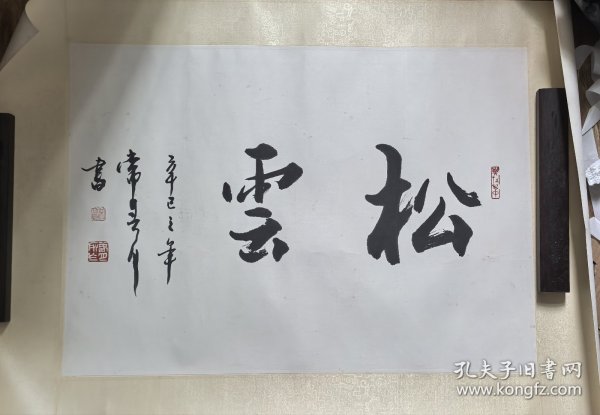 松雲
辛巳之年
常景月
書
孔夫子旧书网
www.kongfz.com